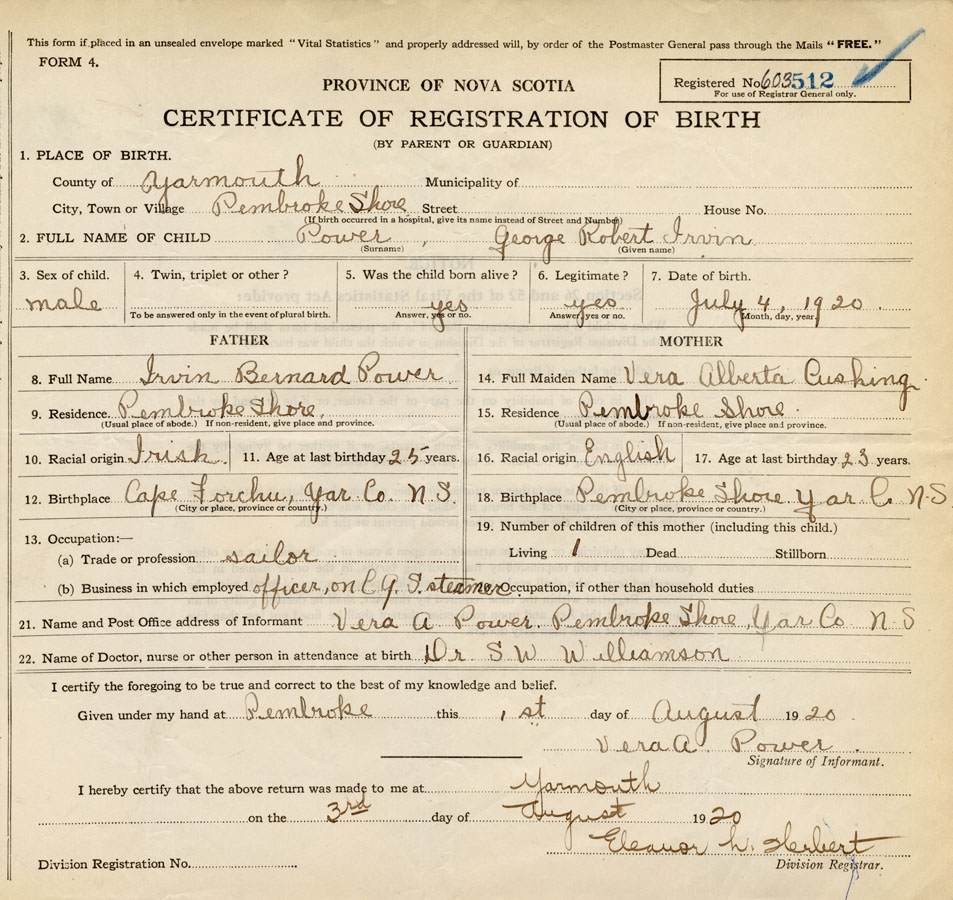 This form if placed in an unsealed envelope marked "Vital Statistics" and properly addressed will, by order of the Postmaster General pass through the Mails "FREE."
FORM 4.
Registered No. 603512
For use of Registrar General only.
PROVINCE OF NOVA SCOTIA
CERTIFICATE OF REGISTRATION OF BIRTH
(BY PARENT OR GUARDIAN)
1. PLACE OF BIRTH.
County of Yarmouth Municipality of
City, Town or Village Pembroke Shore Street House No.
(If birth occurred in a hospital, give its name instead of Street and Number)
2. FULL NAME OF CHILD Power, George Robert Irvin
(Surname) (Given name)
3. Sex of child. 4. Twin, triplet or other? 5. Was the child born alive? 6. Legitimate? 7. Date of birth.
male yes yes July 4, 1920
To be answered only in the event of plural birth. Answer, yes or no. Answer, yes or no. Month, day, year.
FATHER MOTHER
8. Full Name Irvin Bernard Power 14. Full Maiden Name Vera Alberta Cushing
9. Residence. Pembroke Shore, 15. Residence Pembroke Shore
(Usual place of abode.) If non-resident, give place and province. (Usual place of abode.) If non-resident, give place and province.
10. Racial origin Irish 11. Age at last birthday 25 years. 16. Racial origin English 17. Age at last birthday 23 years.
12. Birthplace Cape Forchu, Yar. Co. N.S. 18. Birthplace Pembroke Shore Yar Co. N.S
(City or place, province or country.) (City or place, province or country.)
19. Number of children of this mother (including this child.)
13. Occupation:—
Living 1 Dead Stillborn
(a) Trade or profession sailor
(b) Business in which employed officer, on C.G.S. steamer Occupation, if other than household duties
21. Name and Post Office address of Informant Vera A. Power. Pembroke Shore, Yar Co N.S
22. Name of Doctor, nurse or other person in attendance at birth Dr S W Williamson
I certify the foregoing to be true and correct to the best of my knowledge and belief.
Given under my hand at Pembroke this 1st day of August 1920
Vera A. Power.
Signature of Informant.
I hereby certify that the above return was made to me at Yarmouth
on the 3rd day of August 1920
Eleanor h. Herbert
Division Registration No. Division Registrar.